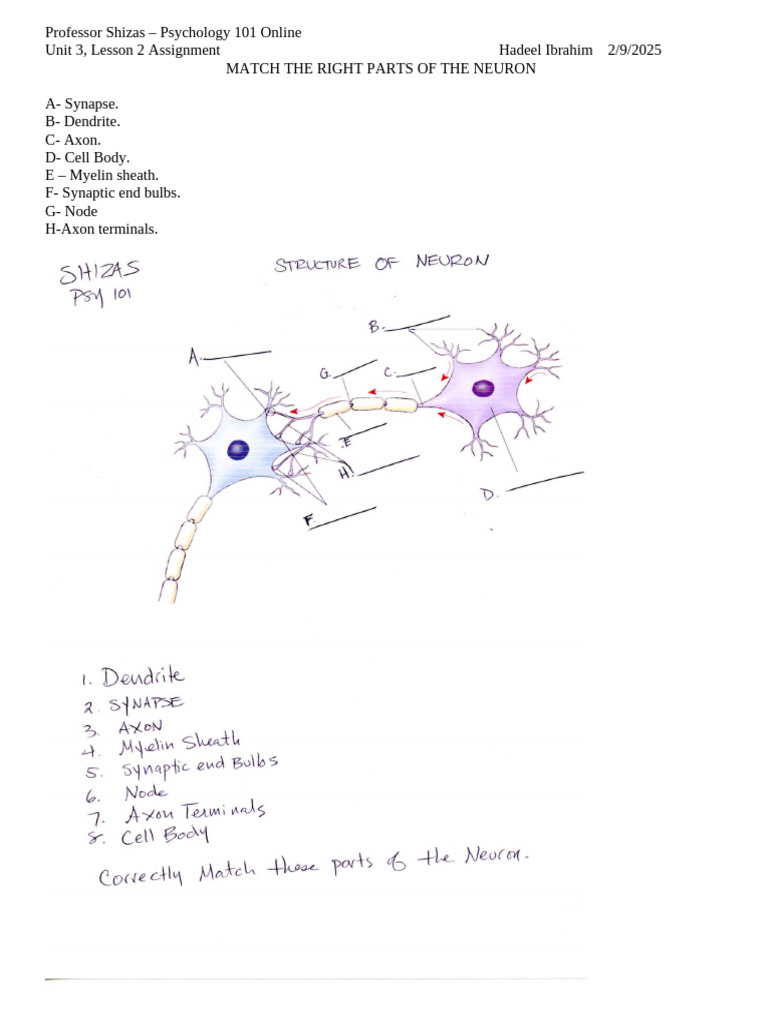 Professor Shizas – Psychology 101 Online
Unit 3, Lesson 2 Assignment Hadeel Ibrahim 2/9/2025
MATCH THE RIGHT PARTS OF THE NEURON
A- Synapse.
B- Dendrite.
C- Axon.
D- Cell Body.
E – Myelin sheath.
F- Synaptic end bulbs.
G- Node
H-Axon terminals.
SHIZAS
PSY 101
STRUCTURE OF NEURON
B.
A.
G.
C.
E
H.
D.
F.
1. Dendrite
2. SYNAPSE
3. AXON
4. Myelin Sheath
5. Synaptic end Bulbs
6. Node
7. Axon Terminals
8. Cell Body
Correctly Match these parts of the Neuron.